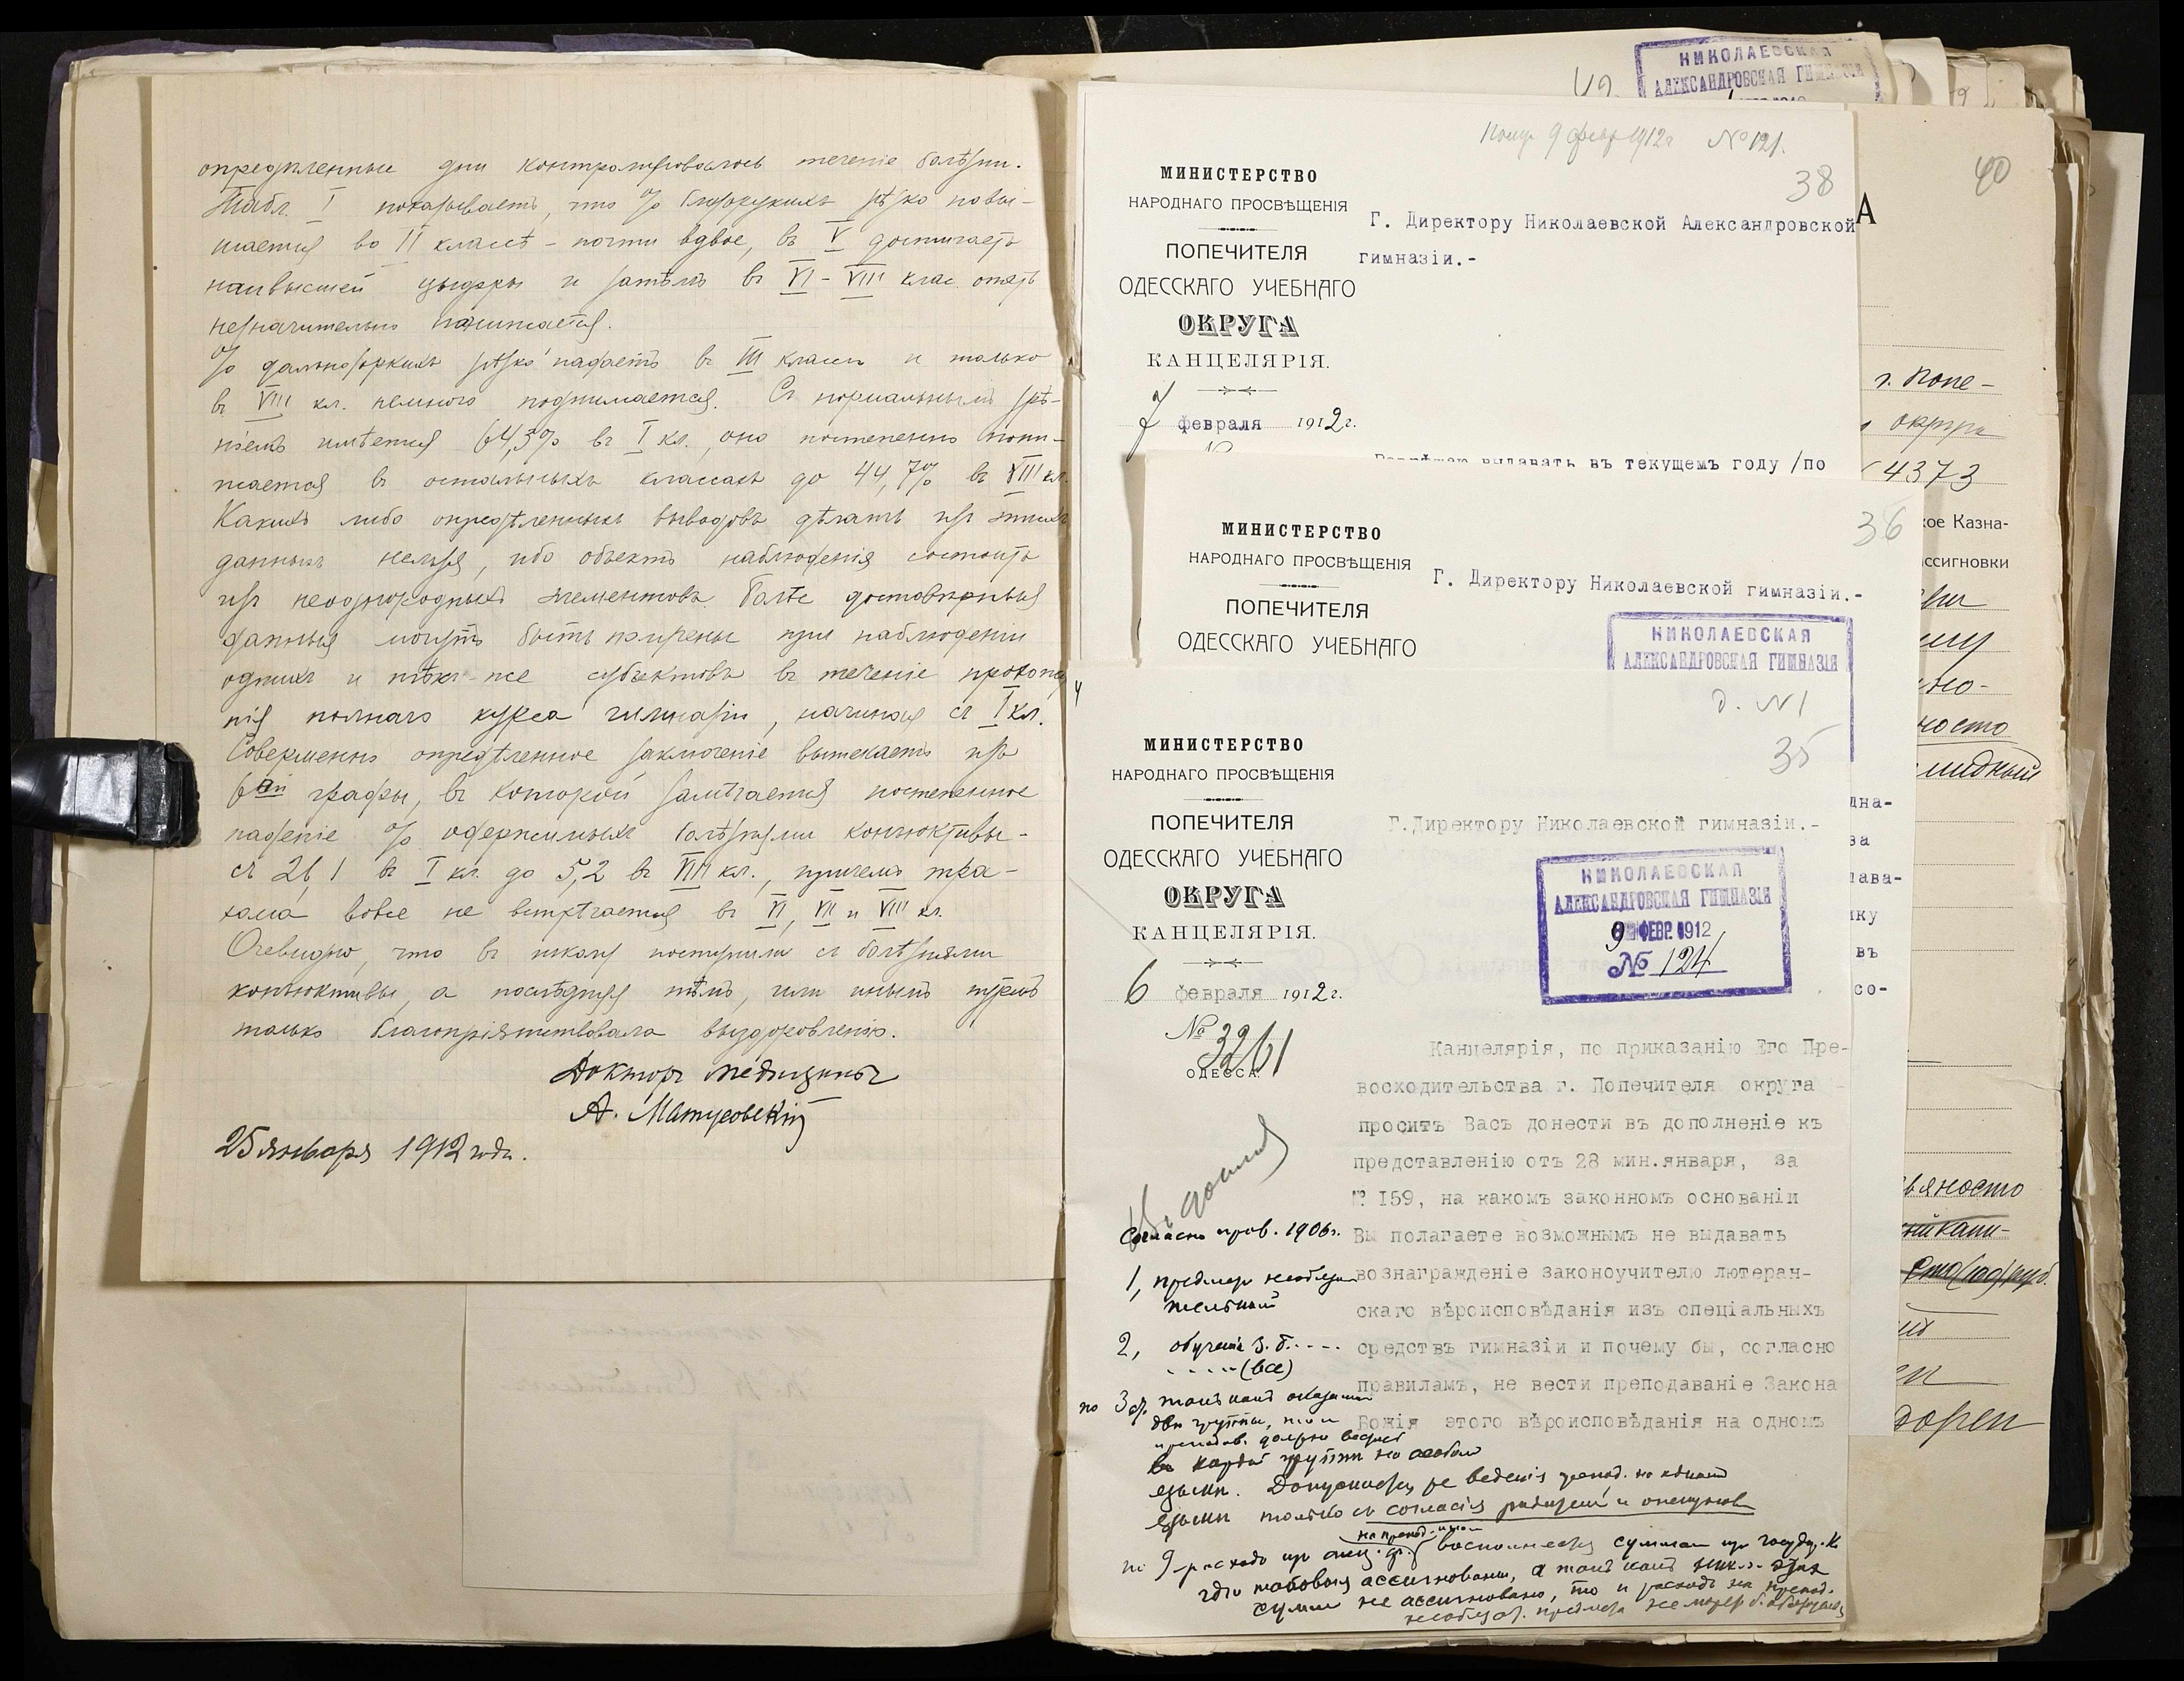 опредѣленные дни контролировалось теченіе болѣзни.
Табл. I показываетъ, что % близорукихъ рѣзко повы-
шается во II классѣ - почти вдвое, въ V достигаетъ
наивысшей цыфры и затѣмъ въ VI - VIII клас. опять
незначительно понижается.
% дальнозоркихъ рѣзко падаетъ въ III классѣ и только
въ VIII кл. немного поднимается. Съ нормальнымъ зрѣ-
ніемъ имѣется 64,3% въ I кл., оно постепенно пони-
жается въ остальныхъ классахъ до 44,7% въ VIII кл.
Какихъ либо опредѣленныхъ выводовъ дѣлать изъ этихъ
данныхъ нельзя, ибо объектъ наблюденія состоитъ
изъ неоднородныхъ элементовъ. Болѣе достовѣрныя
данныя могутъ быть получены при наблюденіи
однихъ и тѣхъ-же субъектовъ въ теченіе прохожде
нія полнаго курса гимназіи, начиная съ I кл.
Совершенно опредѣленное заключеніе вытекаетъ изъ
6ой графы, въ которой замѣчается постепенное
паденіе % одержимыхъ болѣзнями конъюктивы -
съ 26,1 въ I кл. до 5,2 въ VIII кл., причемъ тра-
хома вовсе не встрѣчается въ VI, VII и VIII кл.
Очевидно, что въ школу поступили съ болѣзнями
конъюктивы, а послѣдняя тѣмъ, или инымъ путемъ
только благопріятствовала выздоровленію.
Докторъ медицины
А. Матусовскій
25 января 1912 года.
НИКОЛАЕВСКАЯ
АЛЕКСАНДРОВСКАЯ ГИМНАЗІЯ
Получ. 9 февр 1912г №121.
38
МИНИСТЕРСТВО
НАРОДНАГО ПРОСВѢЩЕНІЯ
ПОПЕЧИТЕЛЯ
ОДЕССКАГО УЧЕБНАГО
ОКРУГА
КАНЦЕЛЯРІЯ.
7 февраля 1912 г.
Г. Директору Николаевской Александровской
гимназіи.-
Разрѣшаю выдавать въ текущемъ году /по
36
МИНИСТЕРСТВО
НАРОДНАГО ПРОСВѢЩЕНІЯ
ПОПЕЧИТЕЛЯ
ОДЕССКАГО УЧЕБНАГО
Г. Директору Николаевской гимназіи.-
НИКОЛАЕВСКАЯ
АЛЕКСАНДРОВСКАЯ ГИМНАЗІЯ
д. №1
35
МИНИСТЕРСТВО
НАРОДНАГО ПРОСВѢЩЕНІЯ
ПОПЕЧИТЕЛЯ
ОДЕССКАГО УЧЕБНАГО
ОКРУГА
КАНЦЕЛЯРІЯ.
6 февраля 1912 г.
№ 3261
ОДЕССА.
Г.Директору Николаевской гимназіи.-
НИКОЛАЕВСКАЯ
АЛЕКСАНДРОВСКАЯ ГИМНАЗІЯ
9 ФЕВР. 1912
№ 124
Канцелярія, по приказанію Его Пре-
восходительства г. Попечителя округа
проситъ Васъ донести въ дополненіе къ
представленію отъ 28 мин.января, за
№ 159, на какомъ законномъ основаніи
Вы полагаете возможнымъ не выдавать
вознагражденіе законоучителю лютеран-
скаго вѣроисповѣданія изъ спеціальныхъ
средствъ гимназіи и почему бы, согласно
правиламъ, не вести преподаваніе Закона
Божія этого вѣроисповѣданія на одномъ
Согласно прав. 1906г.
1, предметъ необяза
тельный
2, обученіе З. Б.....
.....(все)
по 3
двѣ группы, то и
въ каждой группѣ на особомъ
языкѣ. Допускается же веденіе препод. на одномъ
языкѣ только съ согласія родителей и опекуновъ
суммъ не ассигновано, то и расходъ на препод.
40
А
г. Попе-
округа
4373
кое Казна-
ссигновки
дна-
за
лава-
ику
въ
со-